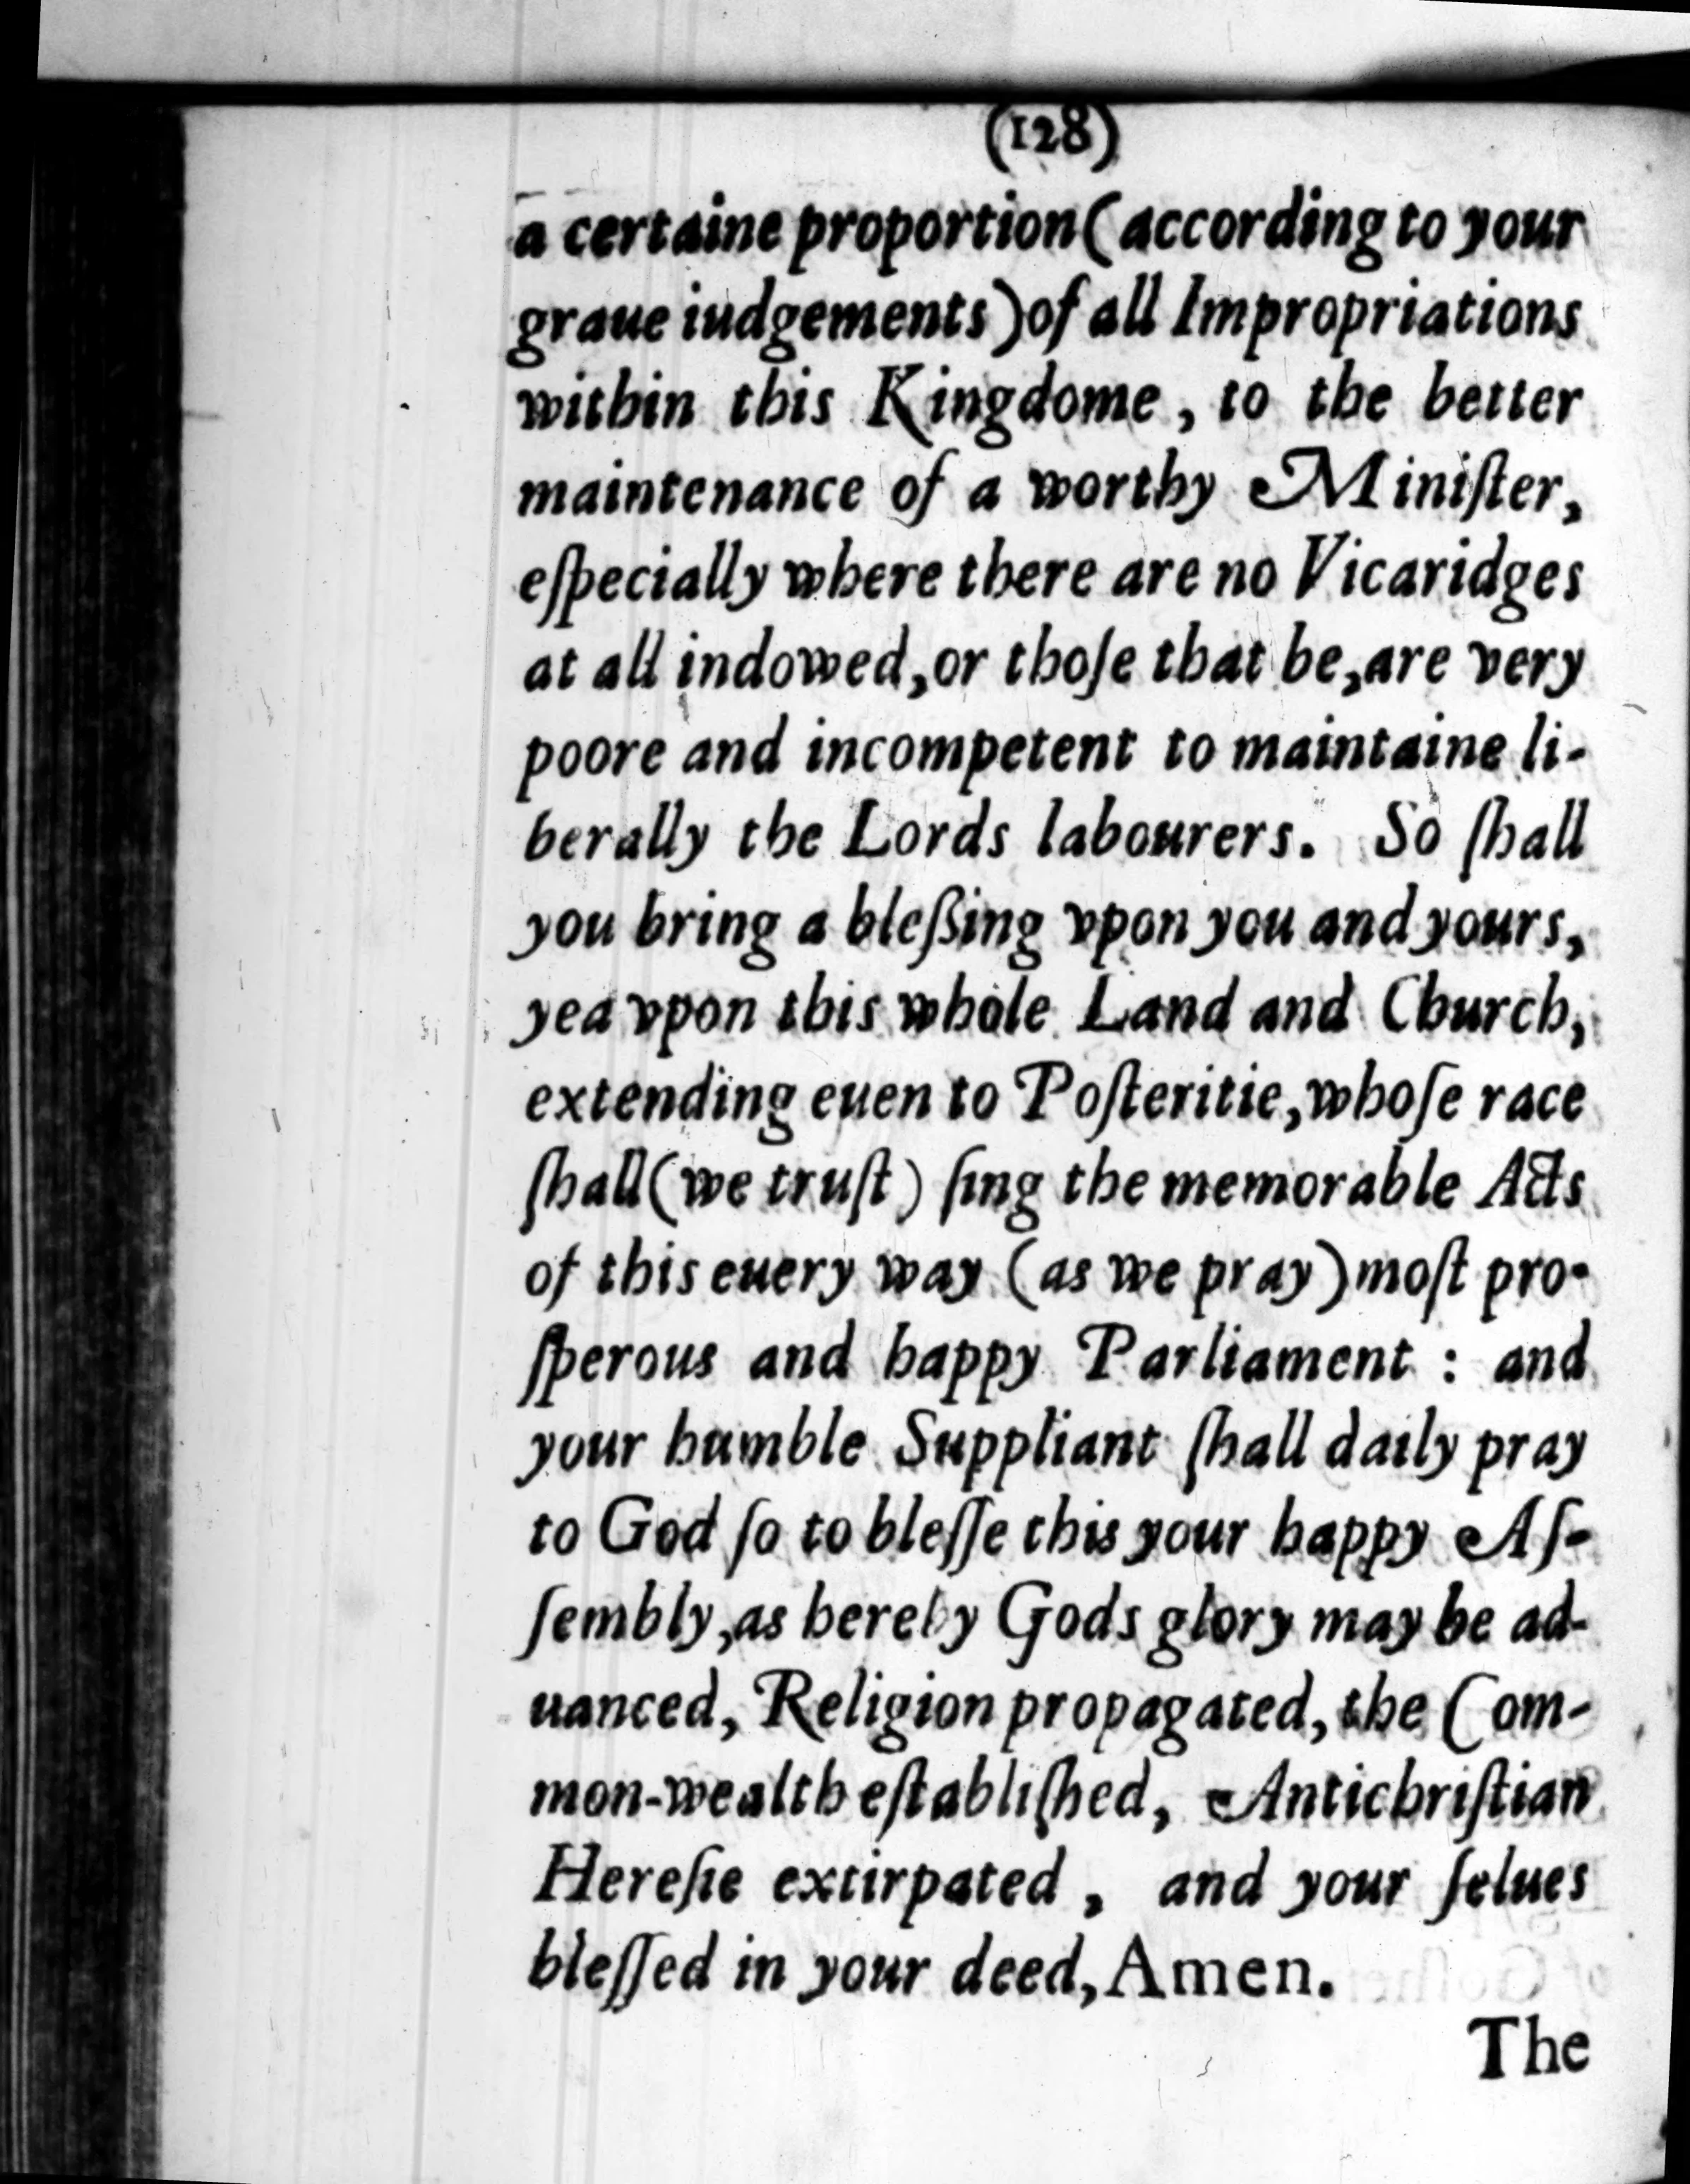 (128)
a certaine proportion (according to your
graue iudgements) of all Impropriations
within this Kingdome, to the better
maintenance of a worthy Miniſter,
eſpecially where there are no Vicaridges
at all indowed, or thoſe that be, are very
poore and incompetent to maintaine li-
berally the Lords labourers. So ſhall
you bring a bleßing vpon you and yours,
yea vpon this whole Land and Church,
extending euen to Poſteritie, whoſe race
ſhall (we truſt) ſing the memorable Acts
of this euery way (as we pray) moſt pro-
ſperous and happy Parliament : and
your humble Suppliant ſhall daily pray
to God ſo to bleſſe this your happy Aſ-
ſembly, as hereby Gods glory may be ad-
uanced, Religion propagated, the Com-
mon-wealth eſtabliſhed, Antichriſtian
Hereſie extirpated, and your ſelues
bleſſed in your deed, Amen.
The